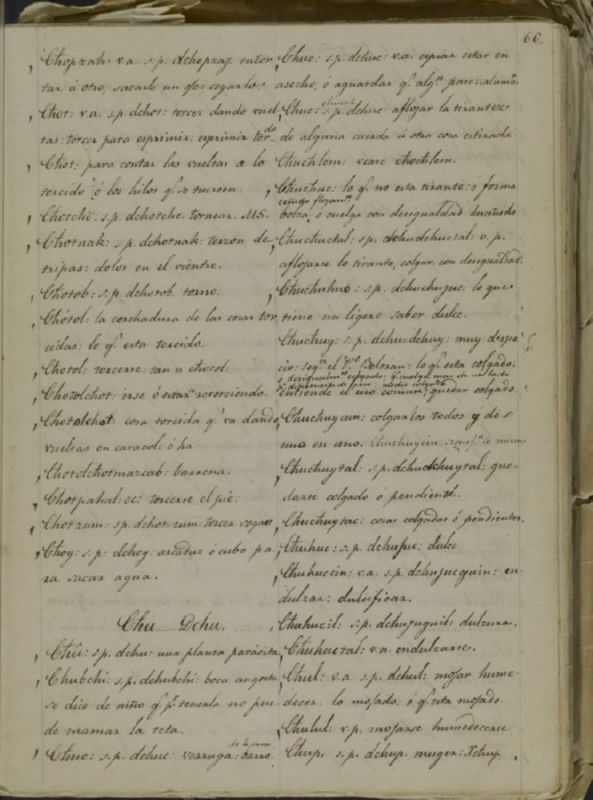 66.
Chopzah: v.a. s.p. dchopzaj. enter
rar á otro, sacarle un ojo: cegarlo.
Chot: v.a. s.p. dchot: torcer dando vuel
tas: torcer para esprimir: esprimir tor
Chot: para contar las vueltas a lo
torcido ó los hilos q. se tuercen.
Chotché. s.p. dchotche. tornear. MS.
Chotnak: s.p. dchotnak: torzon de
tripas: dolor en el vientre.
Chotob: s.p. dchotob. torno.
Chótol: la corchadura de las cosas tor
cidas: lo q. esta torcido.
Chotol: torcerse: tan u chotol:
Chotolchot: irse ó estar retorciendo.
Chotolchot: cosa torcida q. va dando
vueltas en caracol: ó ha
Chotolchotmazcab: barrena.
Chotpahal: torcerse el pie:
Chotzum: s.p. dchotzum: torcer sogas
Choy: s.p. dchoy: arcaduz ó cubo pa
ra sacar agua.
Chu — Dchu.
Chú: s.p. dchu: una planta parásita
Chubchi: s.p. dchubchi: boca angosta
se dice de niño q. p. tenerla no pue
de mamar la teta.
Chuc: s.p. dchuc: verruga: barro.
de la cara
Chuc: s.p. dchuc: v.a. espiar estar en
asecho, ó aguardar q. alg. pase:
Chuc: s.p. dchuc: aflojar la tirantez
de alguna cuerda ú otra cosa estirada
Chuchlem: vease chochlem.
Chuchuc: lo q. no esta tirante: ó forma
bolsa, ó cuelga con desigualdad.
Chuchuctal: s.p. dchudchuctal: v.p.
aflojarse lo tirante, colgar con desigualdad.
Chuchuhuc: s.p. dchuchujuc: lo que
tiene un ligero sabor dulce.
Chuchuy: s.p. dchudchuy: muy despa
cio: seg. el P. Beltran: lo q. esta colgado:
entiende el uso comun: quedar colgado.
Chuchuycun: colgarlos todos y de
uno en uno.
Chuchuytal: s.p. dchudchuytal: que
darse colgado ó pendiente.
Chuchuytac: cosas colgadas ó pendientes.
Chuhuc: s.p. dchujuc: dulce
Chuhuccin: v.a. s.p. dchujucquin: en
dulzar: dulcificar.
Chuhucil: s.p. dchujuquil: dulzura.
Chuhuctal: v.n. endulzarse.
Chul: v.a. s.p. dchul: mojar hume
decer. lo mojado: ó q. esta mojado.
Chulul: v.p. mojarse humedecerse
Chup. s.p. dchup. muger: Xchup.